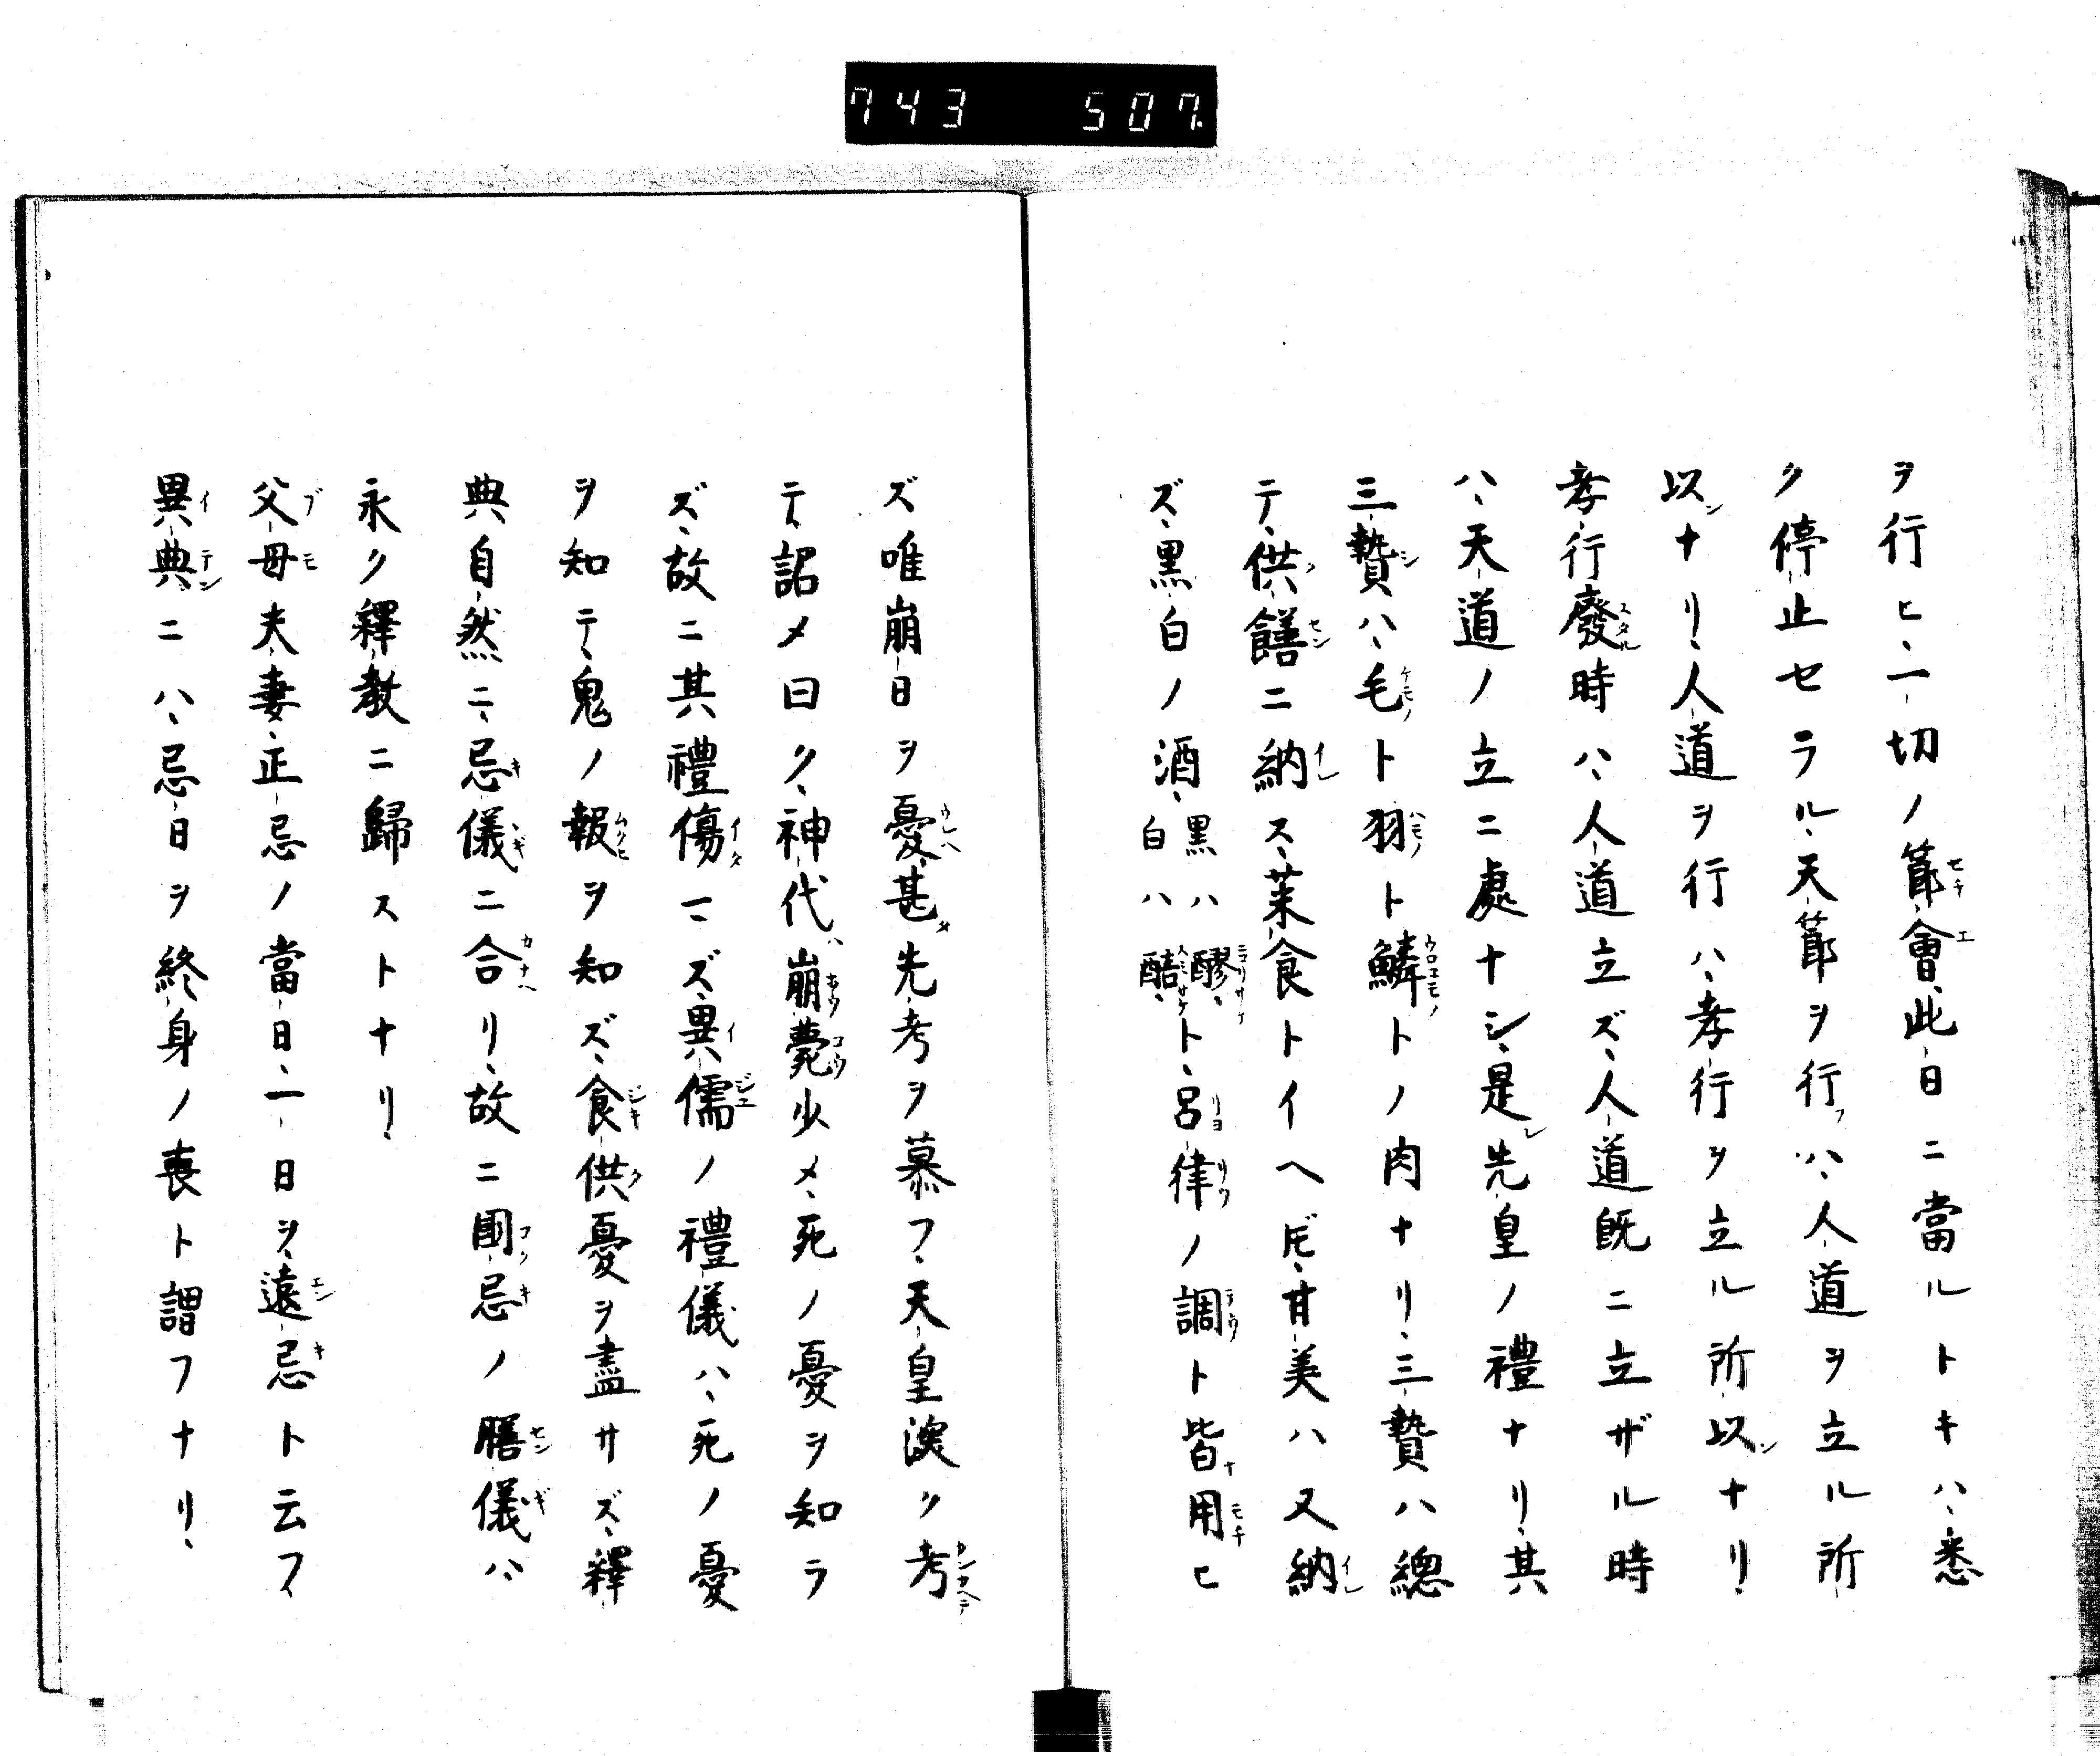 743 507
ヲ行ヒ、一切ノ節會、此日ニ當ルトキハ、悉
ク停止セラル、天節ヲ行フハ、人道ヲ立ル所
以ナリ、人道ヲ行ハ、孝行ヲ立ル所以ナリ、
孝行廢時ハ、人道立ズ、人道既ニ立ザル時
ハ、天道ノ立ニ處ナシ、是レ先皇ノ禮ナリ、其
三贄ハ、毛ト羽ト鱗トノ肉ナリ、三贄ハ總
テ、供饍ニ納ス、菜食トイヘ𪜈、甘美ハ又納
ズ、黒白ノ酒、黒ハ醪、白ハ醋、ト、呂律ノ調ト皆用ヒ
ズ唯崩日ヲ憂、甚先考ヲ慕フ、天皇深ク考
テ、詔メ曰ク、神代ハ崩薨少メ、死ノ憂ヲ知ラ
ズ、故ニ其禮傷マズ、異儒ノ禮儀ハ、死ノ憂
ヲ知テ、鬼ノ報ヲ知ズ、食供憂ヲ盡サズ、釋
典自然ニ、忌儀ニ合リ、故ニ國忌ノ膳儀ハ、
永ク釋教ニ歸ストナリ、
父母夫妻、正忌ノ當日、一日ヲ、遠忌ト云フ、
異典ニハ、忌日ヲ終身ノ喪ト謂フナリ、